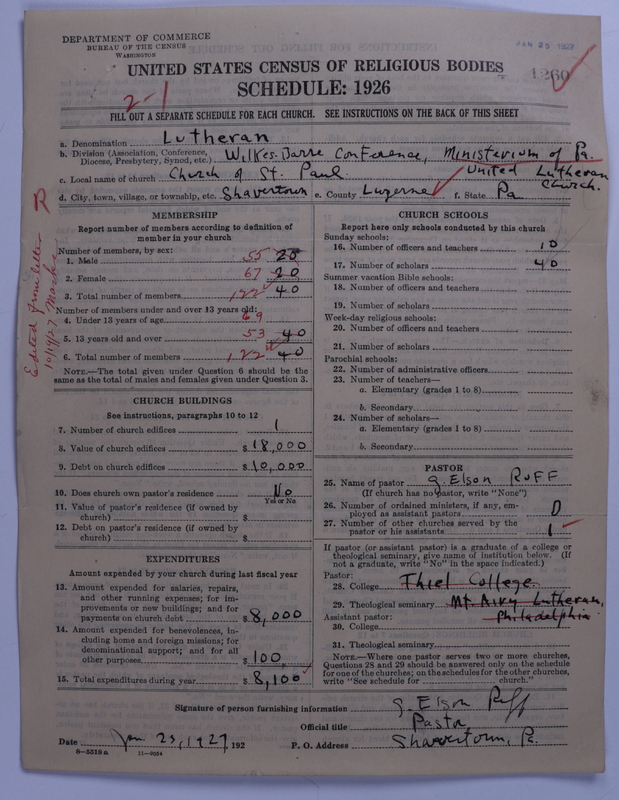 DEPARTMENT OF COMMERCE
BUREAU OF THE CENSUS
WASHINGTON
JAN 25 1927
UNITED STATES CENSUS OF RELIGIOUS BODIES
1260
SCHEDULE: 1926
2-1
FILL OUT A SEPARATE SCHEDULE FOR EACH CHURCH. SEE INSTRUCTIONS ON THE BACK OF THIS SHEET
a. Denomination Lutheran
b. Division (Association, Conference, Diocese, Presbytery, Synod, etc.) Wilkes-Barre Conference, Ministerium of Pa.
United Lutheran Church.
c. Local name of church Church of St. Paul
d. City, town, village, or township, etc. Shavertown e. County Luzerne f. State Pa
Edited from letter
10/19/27
MEMBERSHIP
Report number of members according to definition of
member in your church
Number of members, by sex:
1. Male 55 20
2. Female 67 20
3. Total number of members 122 40
Number of members under and over 13 years old:
4. Under 13 years of age 69
5. 13 years old and over 53 40
6. Total number of members 122 40
NOTE.—The total given under Question 6 should be the
same as the total of males and females given under Question 3.
CHURCH BUILDINGS
See instructions, paragraphs 10 to 12
7. Number of church edifices 1
8. Value of church edifices $ 18,000
9. Debt on church edifices $ 10,000
10. Does church own pastor's residence No
Yes or No
11. Value of pastor's residence (if owned by
church) $
12. Debt on pastor's residence (if owned by
church) $
EXPENDITURES
Amount expended by your church during last fiscal year
13. Amount expended for salaries, repairs,
and other running expenses; for im-
provements or new buildings; and for
payments on church debt $ 8,000
14. Amount expended for benevolences, in-
cluding home and foreign missions; for
denominational support; and for all
other purposes $ 100
15. Total expenditures during year $ 8,100
CHURCH SCHOOLS
Report here only schools conducted by this church
Sunday schools:
16. Number of officers and teachers 10
17. Number of scholars 40
Summer vacation Bible schools:
18. Number of officers and teachers
19. Number of scholars
Week-day religious schools:
20. Number of officers and teachers
21. Number of scholars
Parochial schools:
22. Number of administrative officers
23. Number of teachers—
a. Elementary (grades 1 to 8)
b. Secondary
24. Number of scholars—
a. Elementary (grades 1 to 8)
b. Secondary
PASTOR
25. Name of pastor G. Elson RUFF
(If church has no pastor, write "None")
26. Number of ordained ministers, if any, em-
ployed as assistant pastors 0
27. Number of other churches served by the
pastor or his assistants 1
If pastor (or assistant pastor) is a graduate of a college or
theological seminary, give name of institution below. (If
not a graduate, write "No" in the space indicated.)
Pastor:
28. College Thiel College.
29. Theological seminary Mt. Airy Lutheran,
Philadelphia
Assistant pastor:
30. College
31. Theological seminary
NOTE.—Where one pastor serves two or more churches,
Questions 28 and 29 should be answered only on the schedule
for one of the churches; on the schedules for the other churches,
write "See schedule for church."
Signature of person furnishing information G. Elson Ruff
Official title Pastor
Date Jan 23, 1927, 192 P. O. Address Shavertown, Pa.
8—5518a 11—9054